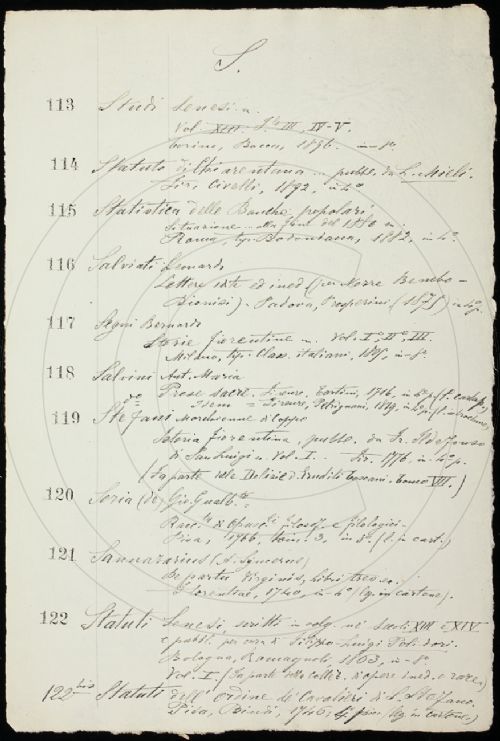 S.
113 Studi Senesi
Vol. XIII. III, IV-V.
Torino, Bocca, 1896. in-8°
114 Statuto di Chiarentana ... pubbl. da L. Mieli.
Civelli, 1892, in 4°
115 Statistica delle Banche popolari
Situazione alla fine del 1880
Roma, tip. Bodoniana, 1882, in 4°.
116 Salviati Leonardo
Lettere edite ed ined. (per Nozze Benebo-
Dionisi). Padova, Prosperini, (1875) in 4°
117 Segni Bernardo
Storie fiorentine Vol. I° II° III.
Milano, tip. Class. italiani, 1805, in-8°
118 Salvini Ant. Maria
Prose sacre. Firenze, Tartini, 1716, in 4°
d° Idem = Firenze,
119 Stefani Marchionne di Coppo
Istoria fiorentina, pubbl. da Fr. Ildefonso
di San Luigi Vol. I. Fir. 1776, in 4°
(Fa parte delle Delizie d. Eruditi toscani. Tomo VII.)
120 Soria (de) Gio. Gualb.
Racc. d'Opusc. filosof. e filologici.
Pisa, 1766, Tom. 3, in 8°.
121 Sannazarius (A. Syncerus)
De partu Virginis, libri tres
Florentiae, 1740, in 4° (leg. in cartone).
122 Statuti Senesi, scritti in volg. ne' secoli XIII e XIV.
e pubbl. per cura di Filippo-Luigi Polidori.
Bologna, Romagnoli, 1863, in-8°
Vol. I. (Fa parte della collez. d'opere ined. o rare)
122 bis Statuti dell'Ordine de' Cavalieri di S. Stefano.
Pisa, Bindi, 1746, (leg. in cartone.)